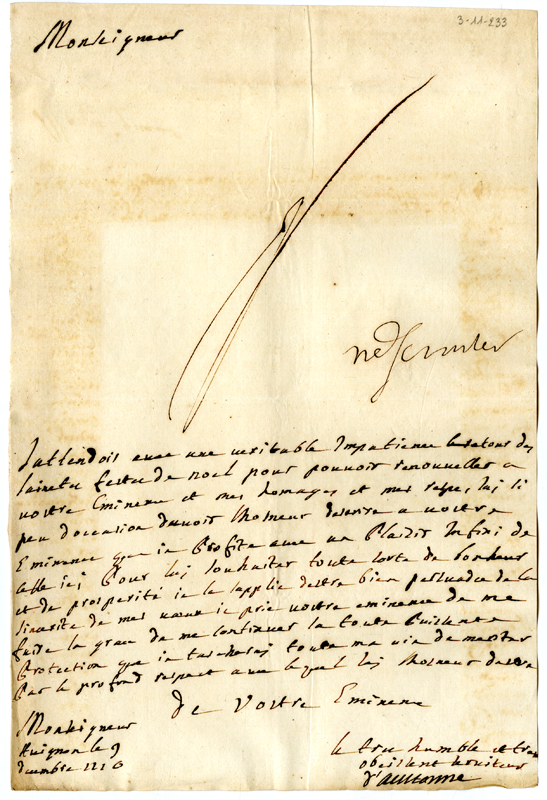 3-11-233
Monseigneur
Jattendois avec une veritable Impatience le retour des
saintes festes de noel pour pouvoir renouveller a
vostre Eminence et mes homages et mes
peu doccasion davoir lhonneur a vostre
Eminence que ie profite avec un plaisir Infini de
celle icj pour luj souhaiter toute sorte de bonheur
et de prosperité ie la supplie destre bien persuadée de la
sincerité de mes vœux ie prie vostre eminence de me
faire la grace de me continuer sa toute puissante
protection que ie tascheraj toute ma vie de
par le profond respect avec lequel iaj lhonneur destre
de Vostre Eminence
Monseigneur
Avignon le 9
decembre
le tres humble et tres
obeissant serviteur